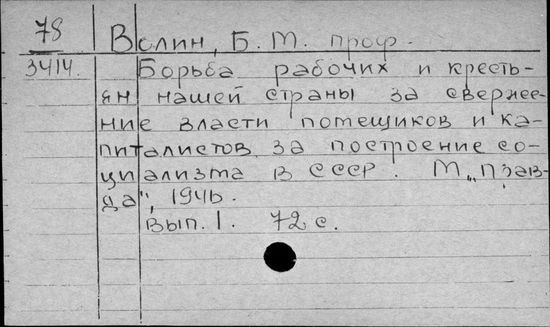 78
Волин, Б. М. проф.
3414. Борьба рабочих и кресть-
ян нашей страны за сверже-
ние власти помещиков и ка-
питалистов, за построение со-
циализма в СССР. М. „Прав-
да", 1946.
Вып. 1. 72 с.